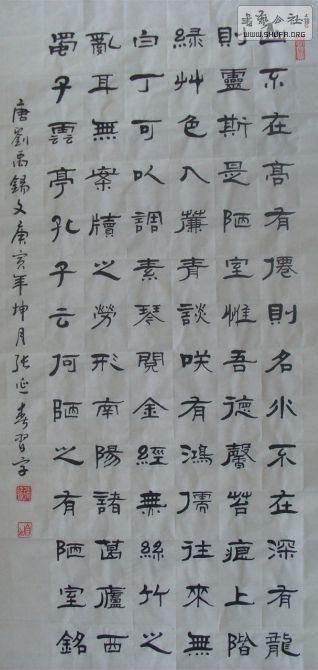 書藝公社
WWW.SHUFA.ORG
山不在高有僊則名水不在深有龍
則靈斯是陋室惟吾德馨苔痕上階
綠艸色入簾青談咲有鴻儒往來無
白丁可以調素琴閱金經無絲竹之
亂耳無案牘之勞形南陽諸葛廬西
蜀子雲亭孔子云何陋之有陋室銘
唐劉禹錫文庚寅年坤月张延春習字